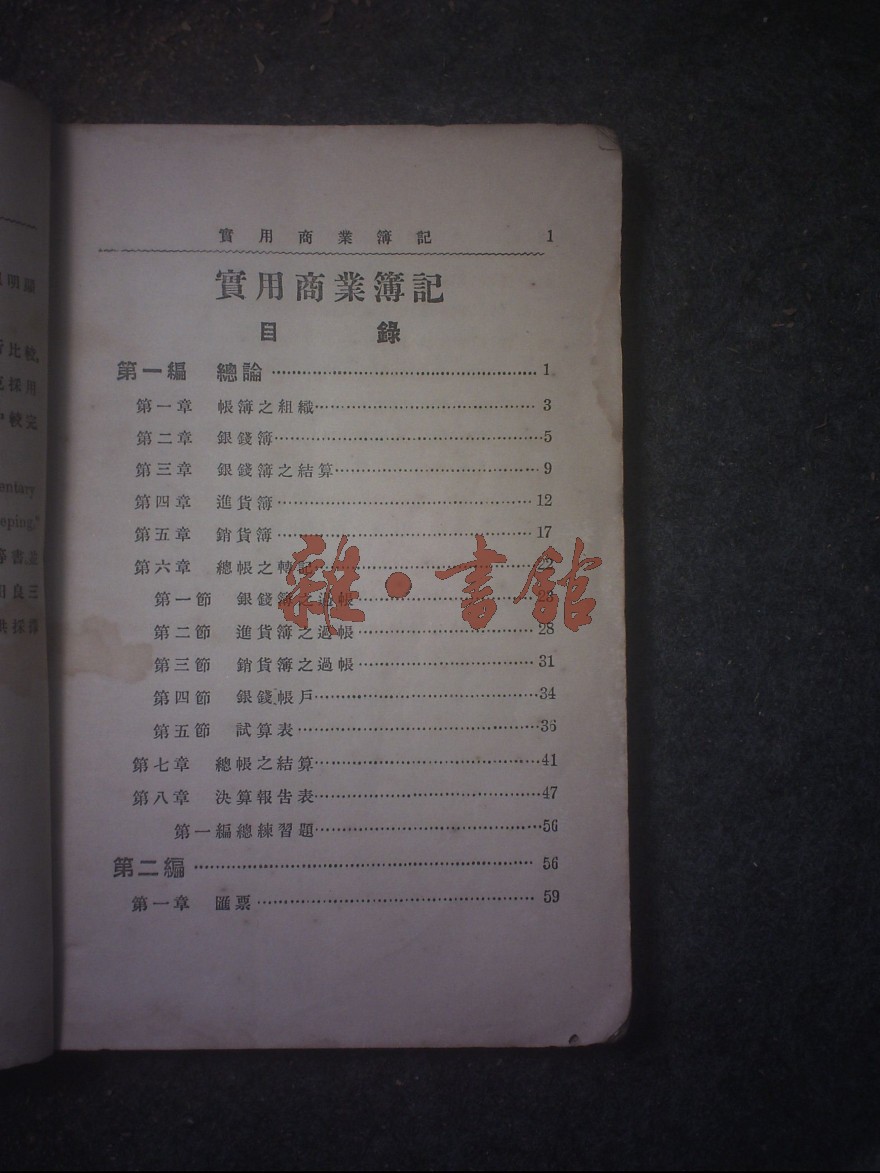 實用商業簿記 1
實用商業簿記
目錄
第一編 總論 1
第一章 帳簿之組織 3
第二章 銀錢簿 5
第三章 銀錢簿之結算 9
第四章 進貨簿 12
第五章 銷貨簿 17
第六章 總帳之轉記 22
第一節 銀錢簿之過帳 23
第二節 進貨簿之過帳 28
第三節 銷貨簿之過帳 31
第四節 銀錢帳戶 34
第五節 試算表 36
第七章 總帳之結算 41
第八章 決算報告表 47
第一編總練習題 56
第二編 56
第一章 匯票 59
雜·書館
明顯
比較,
採用
較完
entary
eping,"
書並
田良三
供採擇